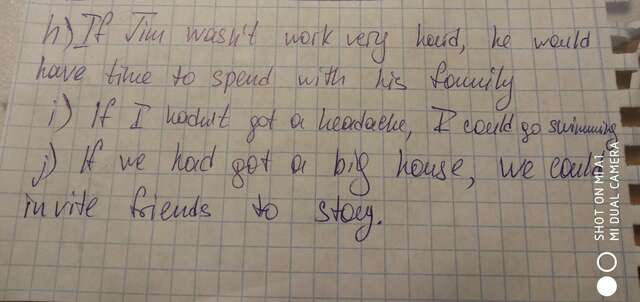 h) If Jim wasn't work very hard, he would
have time to spend with his family
i) If I hadn't got a headache, I could go swimming
j) If we had got a big house, we could
invite friends to stay.
SHOT ON MI A1
MI DUAL CAMERA